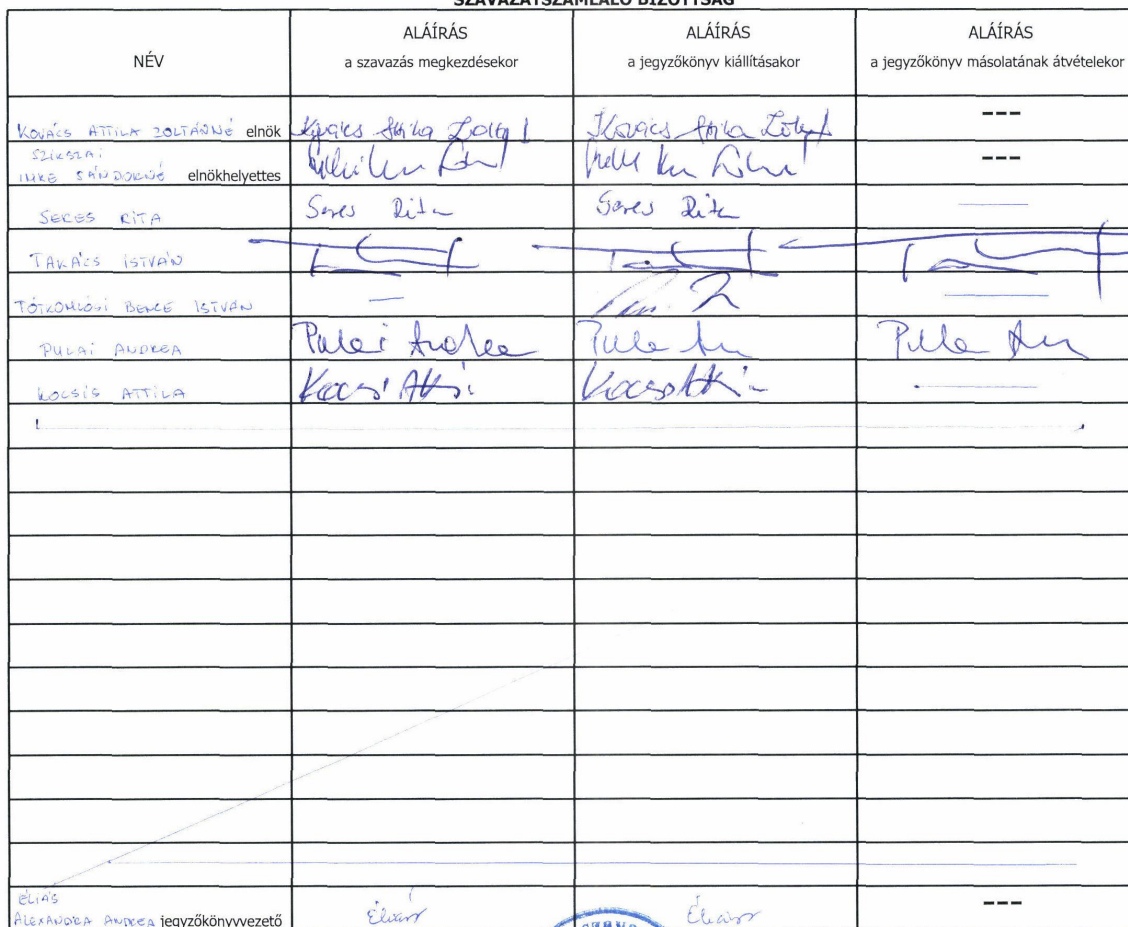 SZAVAZATSZÁMLÁLÓ BIZOTTSÁG
NÉV
ALÁÍRÁS
a szavazás megkezdésekor
ALÁÍRÁS
a jegyzőkönyv kiállításakor
ALÁÍRÁS
a jegyzőkönyv másolatának átvételekor
KOVÁCS ATTILA ZOLTÁNNÉ elnök Kovács Attila Zolt Kovács Attila Zolt ---
SZIKSZAI
IMRE SÁNDORNÉ elnökhelyettes ---
SERES RITA Seres Rita Seres Rita
TAKÁCS ISTVÁN
TÓTKOMLÓSI BENCE ISTVÁN
PULAI ANDREA Pulai Andrea
KOCSIS ATTILA
ÉLIÁS
ALEXANDRA ANDREA jegyzőkönyvvezető ---